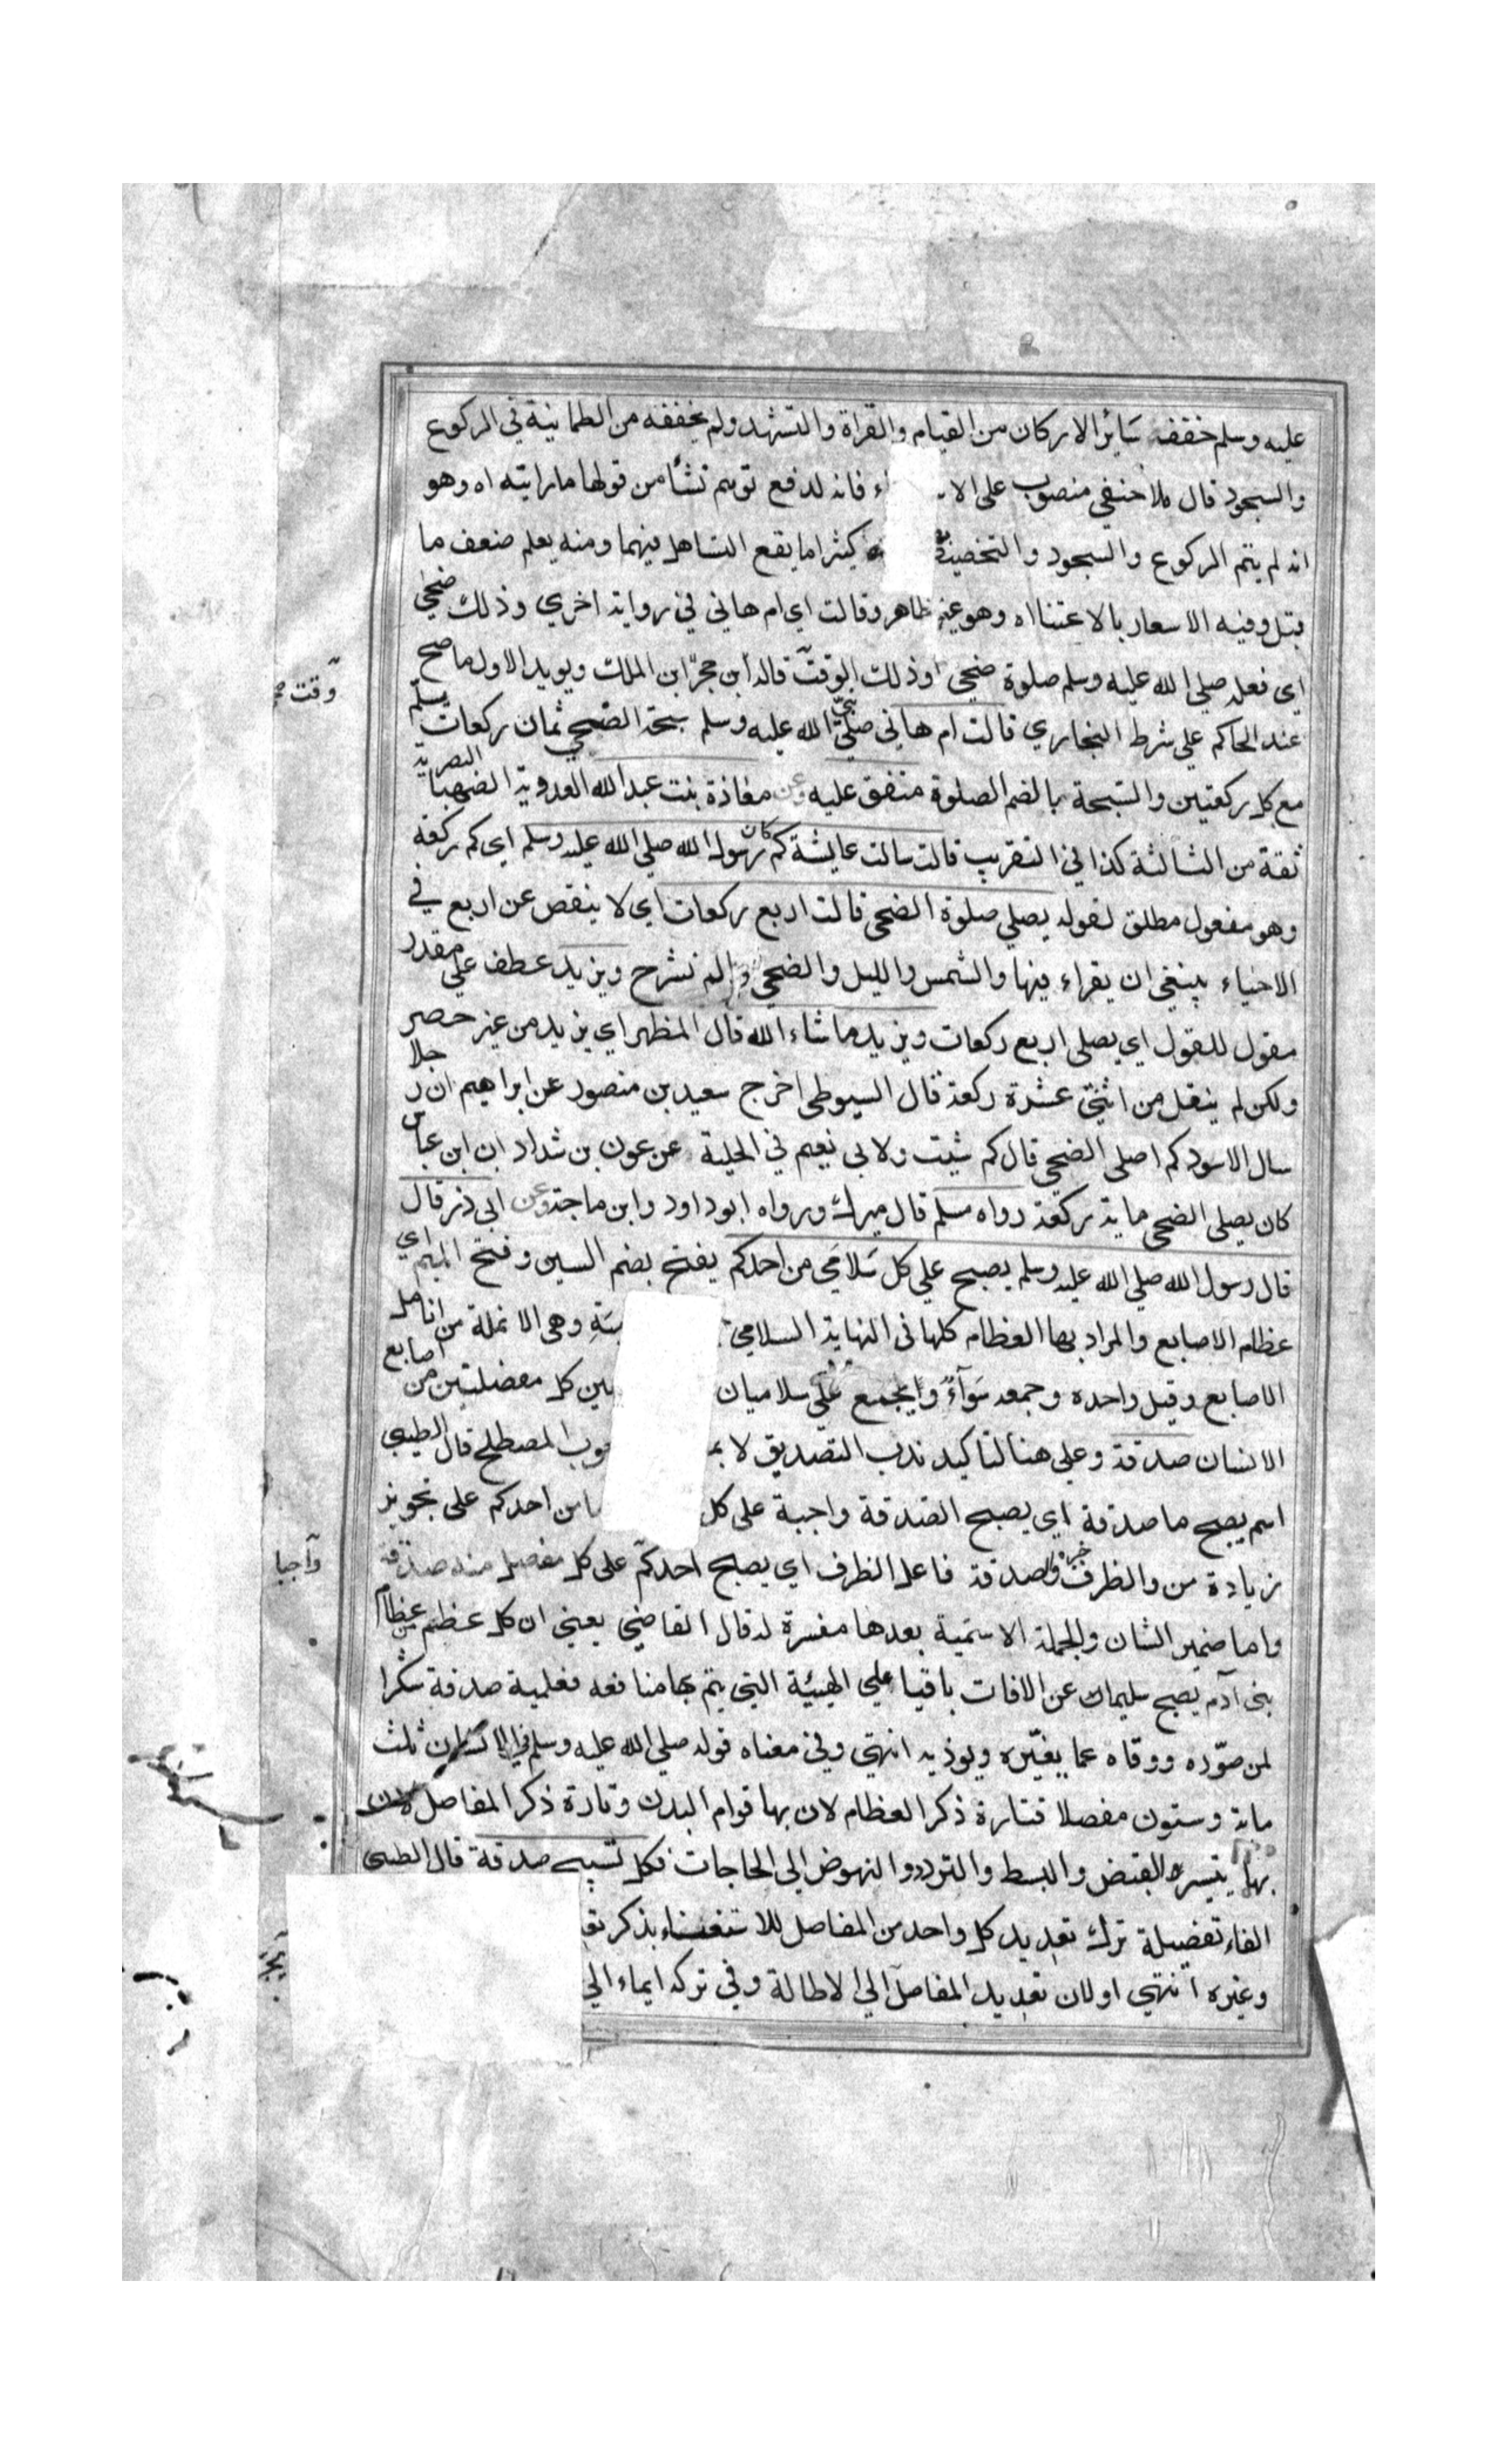 عليه وسلم خففه سَائر الاركان من القيام والقراة والتشهد ولم يخففه من الطمانينة في الركوع
والسجود قال ملا حنفي منصوب على الا ء فانه لدفع توهم نشأ من قولها ما رايته اه وهو
انه لم يتم الركوع والسجود والتخصيص كثيرا ما يقع التساهل فيهما ومنه يعلم ضعف ما
قيل وفيه الاسعار بالاعتنا اه وهو غير ظاهر وقالت اي ام هاني في رواية اخري وذلك ضحي
اي فعله صلي الله عليه وسلم صلوة ضحي اوذلك الوقت قاله ابن حجر ابن الملك ويويد الاول ما صح
وقت صح
عند الحاكم علي شرط البخاري قالت ام هاني صلي النبي الله عليه وسلم سبحة الضحي ثمان ركعات يسلم
مع كل ركعتين والسبحة بالضم الصلوة متفق عليه وعن معاذة بنت عبد الله العدوية الصهبا البصرية
ثقة من الثالثة كذا في التقريب قالت سالت عايشة كم كان رسول الله صلي الله عليه وسلم اي كم ركعة
وهو مفعول مطلق لقوله يصلي صلوة الضحي قالت اربع ركعات اي لا ينقص عن اربع في
الاحياء ينبغي ان يقراء فيها والشمس والليل والضحي والم نشرح ويزيد عطف علي مقدر
مقول للقول اي يصلي اربع ركعات ويزيد ما شاء الله قال المظهر اي يزيد من غير حصر
ولكن لم ينقل من اثنتي عشرة ركعة قال السيوطي اخرج سعيد بن منصور عن ابراهيم ان رجلا
سال الاسود كم اصلي الضحي قال كم شيت ولابي نعيم في الحلية عن عون بن شداد ان ابن عباس
كان يصلي الضحي ماية ركعة رواه مسلم قال ميرك ورواه ابوداود وابن ماجة وعن ابي ذر قال
قال رسول الله صلي الله عليه وسلم يصبح علي كل سَلامَي من احدكم يفتح بضم السين وفتح الميم اي
عظام الاصابع والمراد بها العظام كلها في النهاية السلامي وهي الانملة من انامل
الاصابع وقيل واحده وجمعه سَوآءٌ ويجمع علي سلاميان بين كل مفصلين من اصابع
الانسان صدقة وعلي هنا لتاكيد ندب التصديق لا المصطلح قال الطيبي
اسم يصبح ما صدقة اي يصبح الصدقة واجبة علي كل من احدكم علي تجويز
زيادة من والظرف خبره وصدقة فاعل الظرف اي يصبح احدكم علي كل مفصل منه صدقة
واجبا
واما ضمير الشان والجملة الاسمية بعدها مفسرة له قال القاضي يعني ان كل عظم من عظام
بني آدم يصبح سليما عن الافات باقيا علي الهيئة التي يتم بها منافعه فعليه صدقة شكرا
لمن صوّره ووقاه عما يغيّره ويوذيه انتهي وفي معناه قوله صلي الله عليه وسلم في الانسان ثلث
ماية وستون مفصلا فتارة ذكر العظام لان بها قوام البدن وتارة ذكر المفاصل لان
بها يتيسر القبض والبسط والتردد والنهوض الي الحاجات فكل تسبيحة صدقة قال الطيبي
الفاء تفصيلة ترك تعديد كل واحد من المفاصل للاستغناء بذكر
وغيره انتهي اولان تعديد المفاصل الي الاطالة وفي تركه ايماء الي